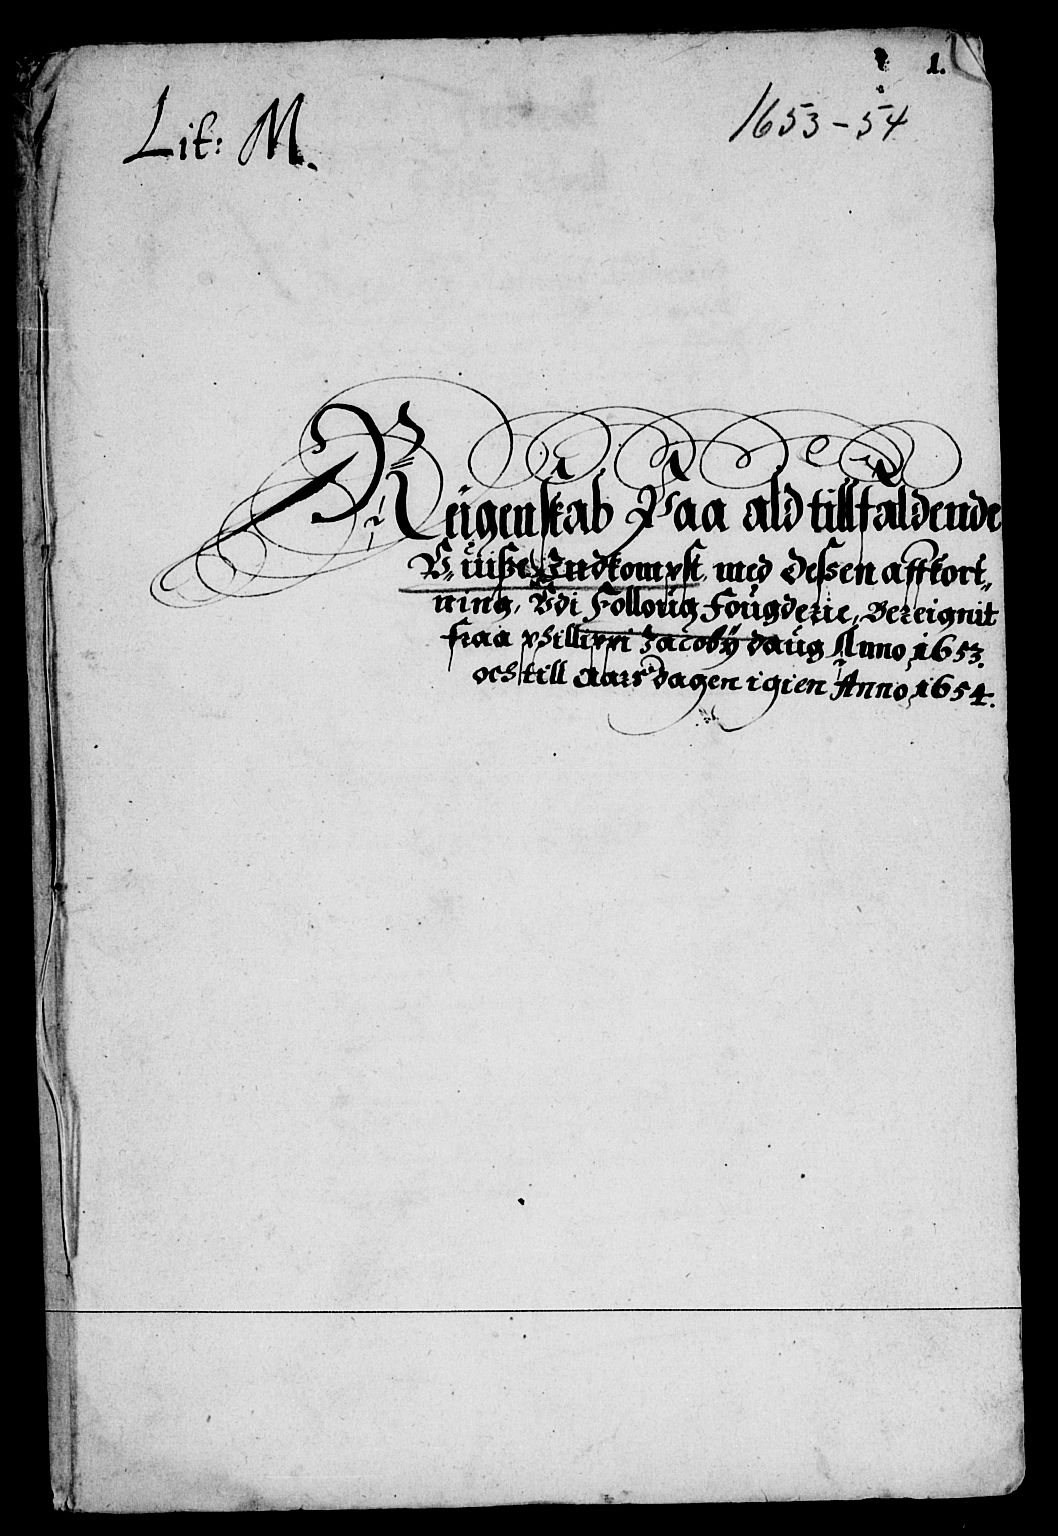 1.
Lit: M.
1653-54
Reigenskab Paa ald tillfaldende
Uuiße Indkompst, med deßen affkort-
ning, Udi Folloug Fougderie, Bereignit
fraa Philippi Jacoby daug Anno 1653.
och till aarsdagen igien Anno 1654.